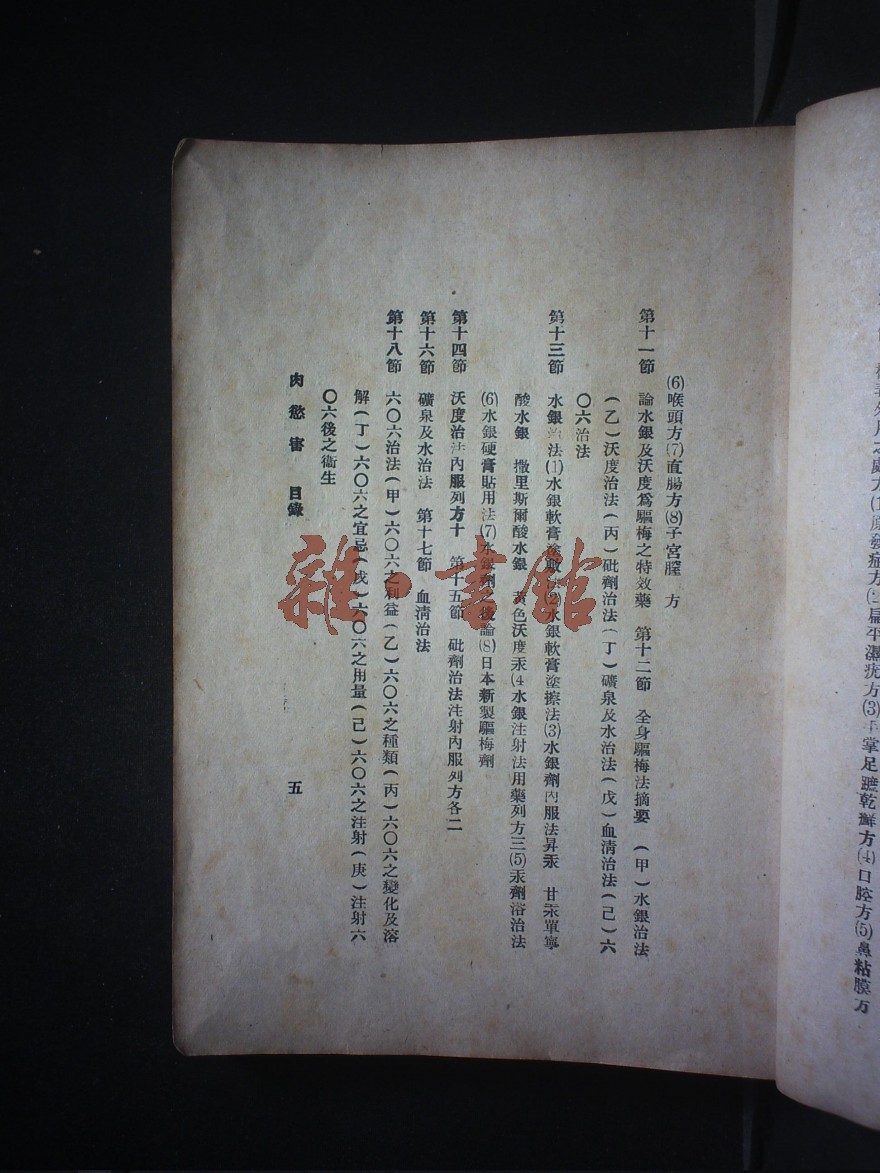 梅毒外用之處方(1)初發症方(2)扁平濕疣方(3)手掌足蹠乾癬方(4)口腔方(5)鼻粘膜方
(6)喉頭方(7)直腸方(8)子宮膣 方
第十一節 論水銀及沃度爲驅梅之特效藥 第十二節 全身驅梅法摘要 (甲)水銀治法
(乙)沃度治法(丙)砒劑治法(丁)礦泉及水治法(戊)血淸治法(己)六
〇六治法
第十三節 水銀治法(1)水銀軟膏塗敷法(2)水銀軟膏塗擦法(3)水銀劑內服法昇汞 甘汞單寧
酸水銀 撒里斯爾酸水銀 黃色沃度汞(4水銀注射法用藥列方三(5)汞劑溶治法
(6)水銀硬膏貼用法(7)水銀劑之後論(8)日本新製驅梅劑
第十四節 沃度治法內服列方十 第十五節 砒劑治法注射內服列方各二
第十六節 礦泉及水治法 第十七節 血淸治法
第十八節 六〇六治法(甲)六〇六之利益(乙)六〇六之種類(丙)六〇六之變化及溶
解(丁)六〇六之宜忌(戊)六〇六之用量(己)六〇六之注射(庚)注射六
〇六後之衞生
肉慾害 目錄 五
雜·書館